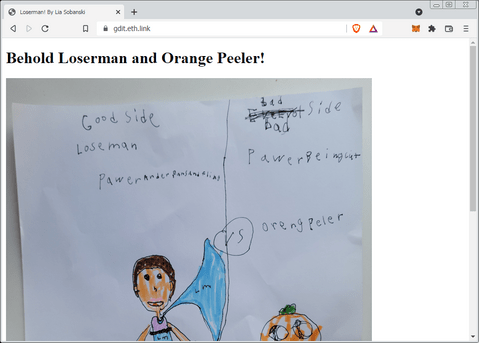 Loserman! By Lia Sobanski
gdit.eth.link
Behold Loserman and Orange Peeler!
Good Side
Loseman
Pawer
bad
Side
bad
Pawer Being cut
VS
oreng Peler
Lm
Lm